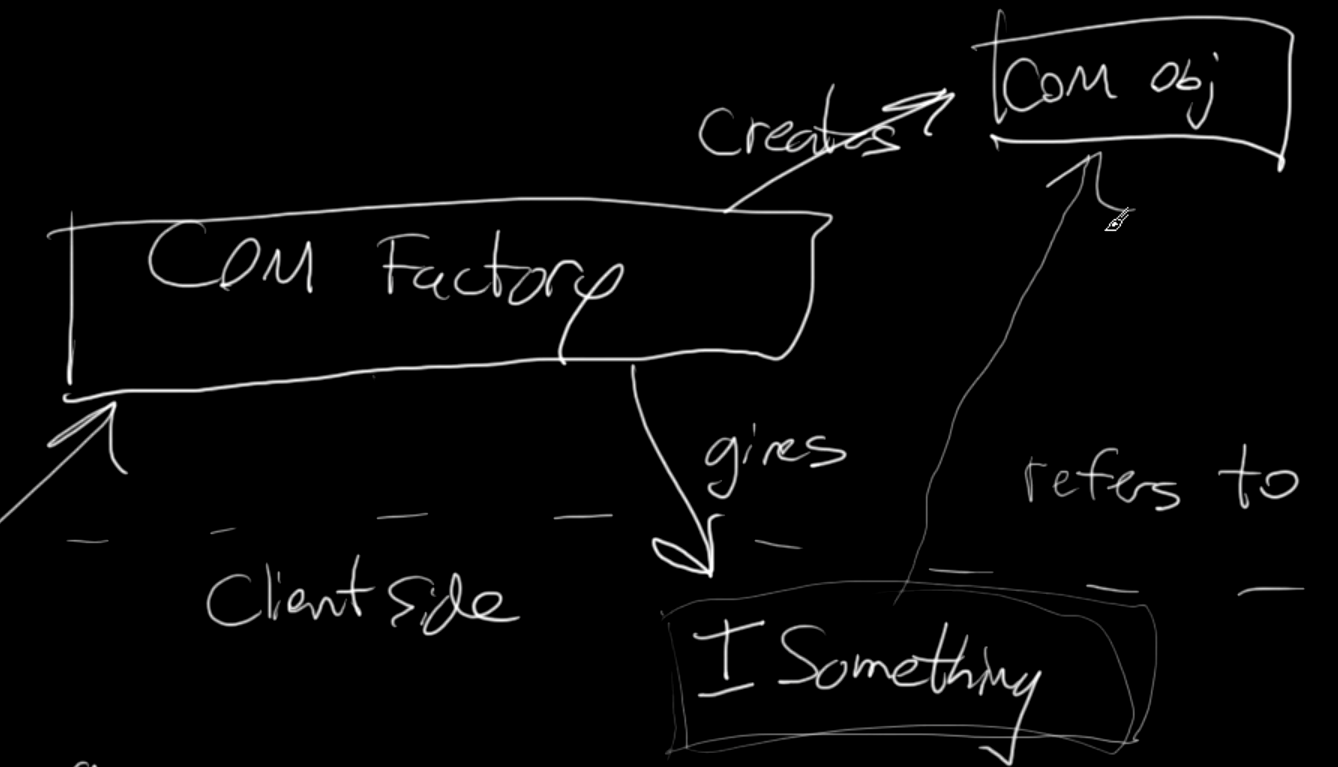 COM Obj
Creates
COM Factory
gives
refers to
Client side
ISomething